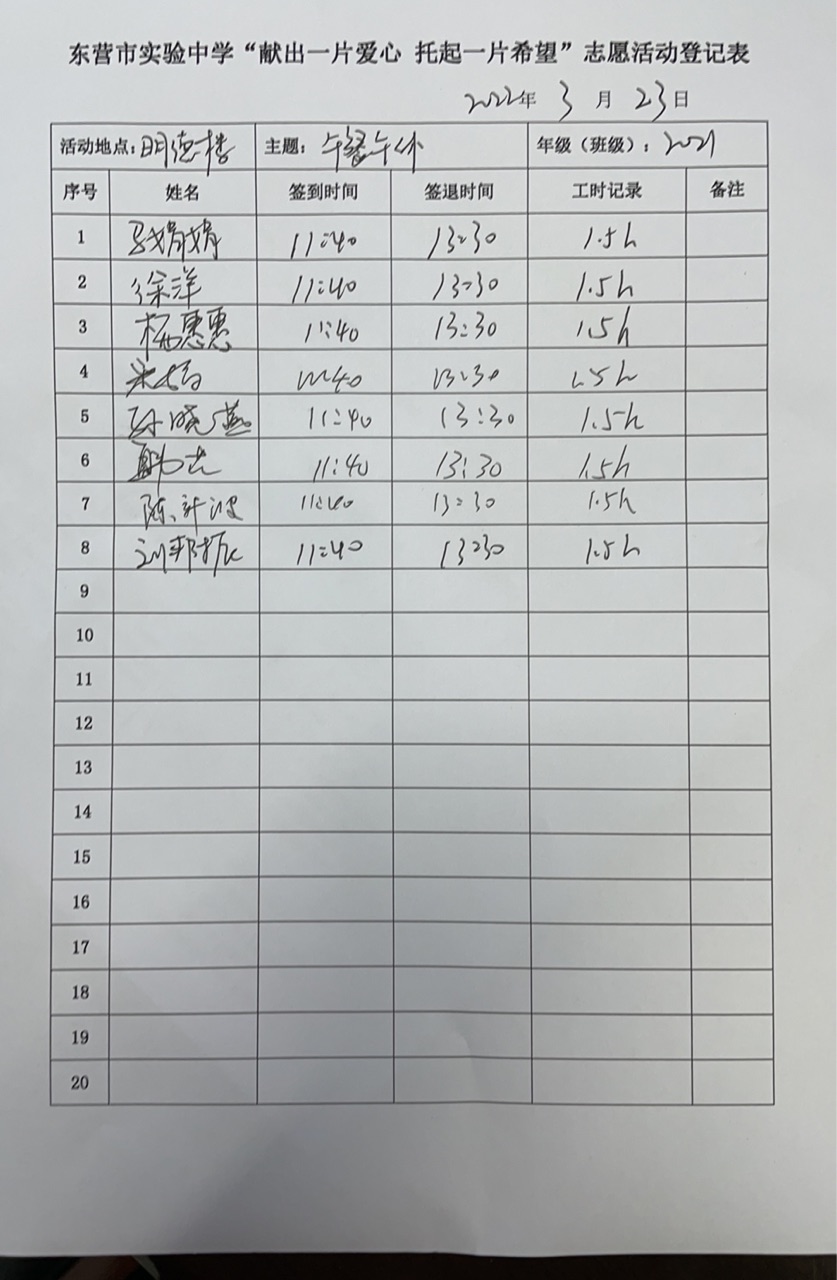 东营市实验中学“献出一片爱心 托起一片希望”志愿活动登记表
2022年 3 月 23日
活动地点：明德楼 主题：午餐午休 年级（班级）：2021
序号 姓名 签到时间 签退时间 工时记录 备注
1 马娟娟 11:40 13:30 1.5h
2 徐洋 11:40 13:30 1.5h
3 杨惠惠 11:40 13:30 1.5h
4 11:40 13:30 1.5h
5 孙晓燕 11:40 13:30 1.5h
6 11:40 13:30 1.5h
7 11:40 13:30 1.5h
8 刘邦振 11:40 13:30 1.5h
9
10
11
12
13
14
15
16
17
18
19
20